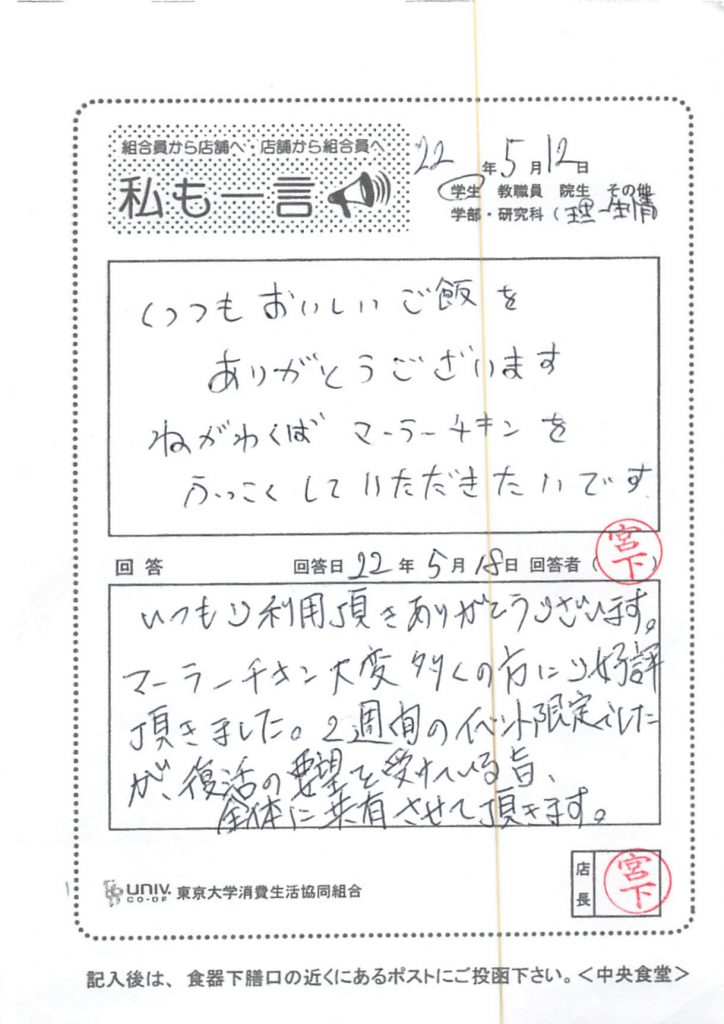 組合員から店舗へ・店舗から組合員へ
私も一言
22年5月12日
学生 教職員 院生 その他
学部・研究科(理一生情
いつもおいしいご飯を
ありがとうございます
ねがわくば マーラーチキンを
ふっこくしていただきたいです
回答 回答日22年5月18日 回答者(宮下)
いつもご利用頂きありがとうございます。
マーラーチキン大変多くの方にご好評
頂きました。2週間のイベント限定でした
が、復活の要望を受けている旨、
全体に共有させて頂きます。
UNIV. CO-OP 東京大学消費生活協同組合
店長 宮下
記入後は、食器下膳口の近くにあるポストにご投函下さい。<中央食堂>